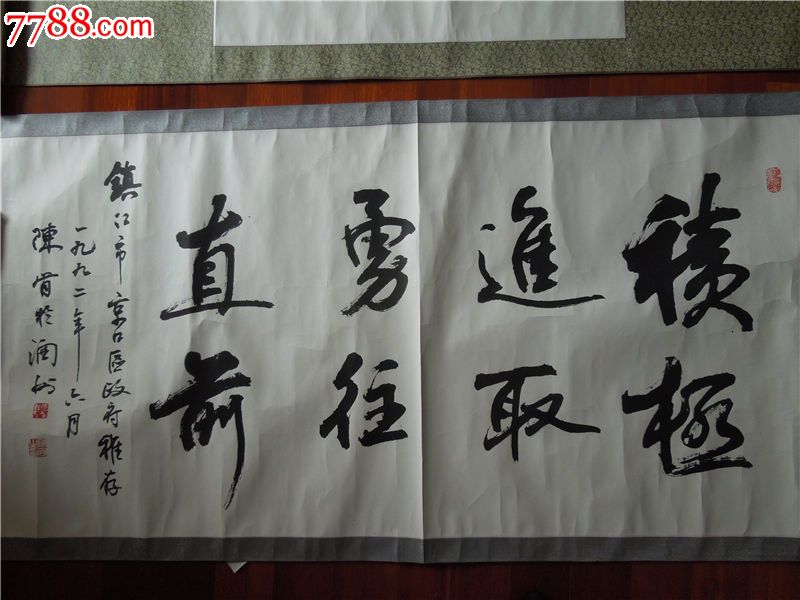 7788.com
積極
進取
勇往
直前
鎮江市京口區政府雅存
一九九二年六月
陳㫺於潤州